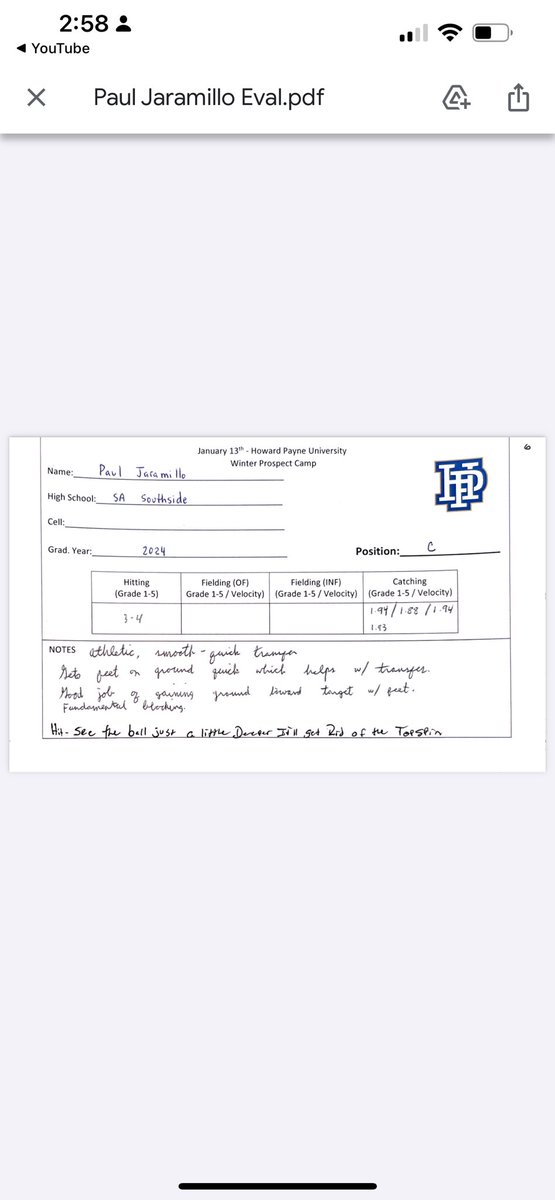 2:58
◀ YouTube
Paul Jaramillo Eval.pdf
6
January 13th - Howard Payne University
Winter Prospect Camp
Name: Paul Jaramillo
HP
High School: SA Southside
Cell:
Grad. Year: 2024
Position: C
Hitting (Grade 1-5) Fielding (OF) Grade 1-5 / Velocity) Fielding (INF) (Grade 1-5 / Velocity) Catching (Grade 1-5 / Velocity)
3-4 1.94/1.88/1.94
1.93
NOTES athletic, smooth-quick transfer
Gets feet on ground quick which helps w/ transfer.
Good job of gaining ground toward target w/ feet.
Fundamental blocking.
Hit- See the ball just a little Deeper It'll get Rid of the TopSpin